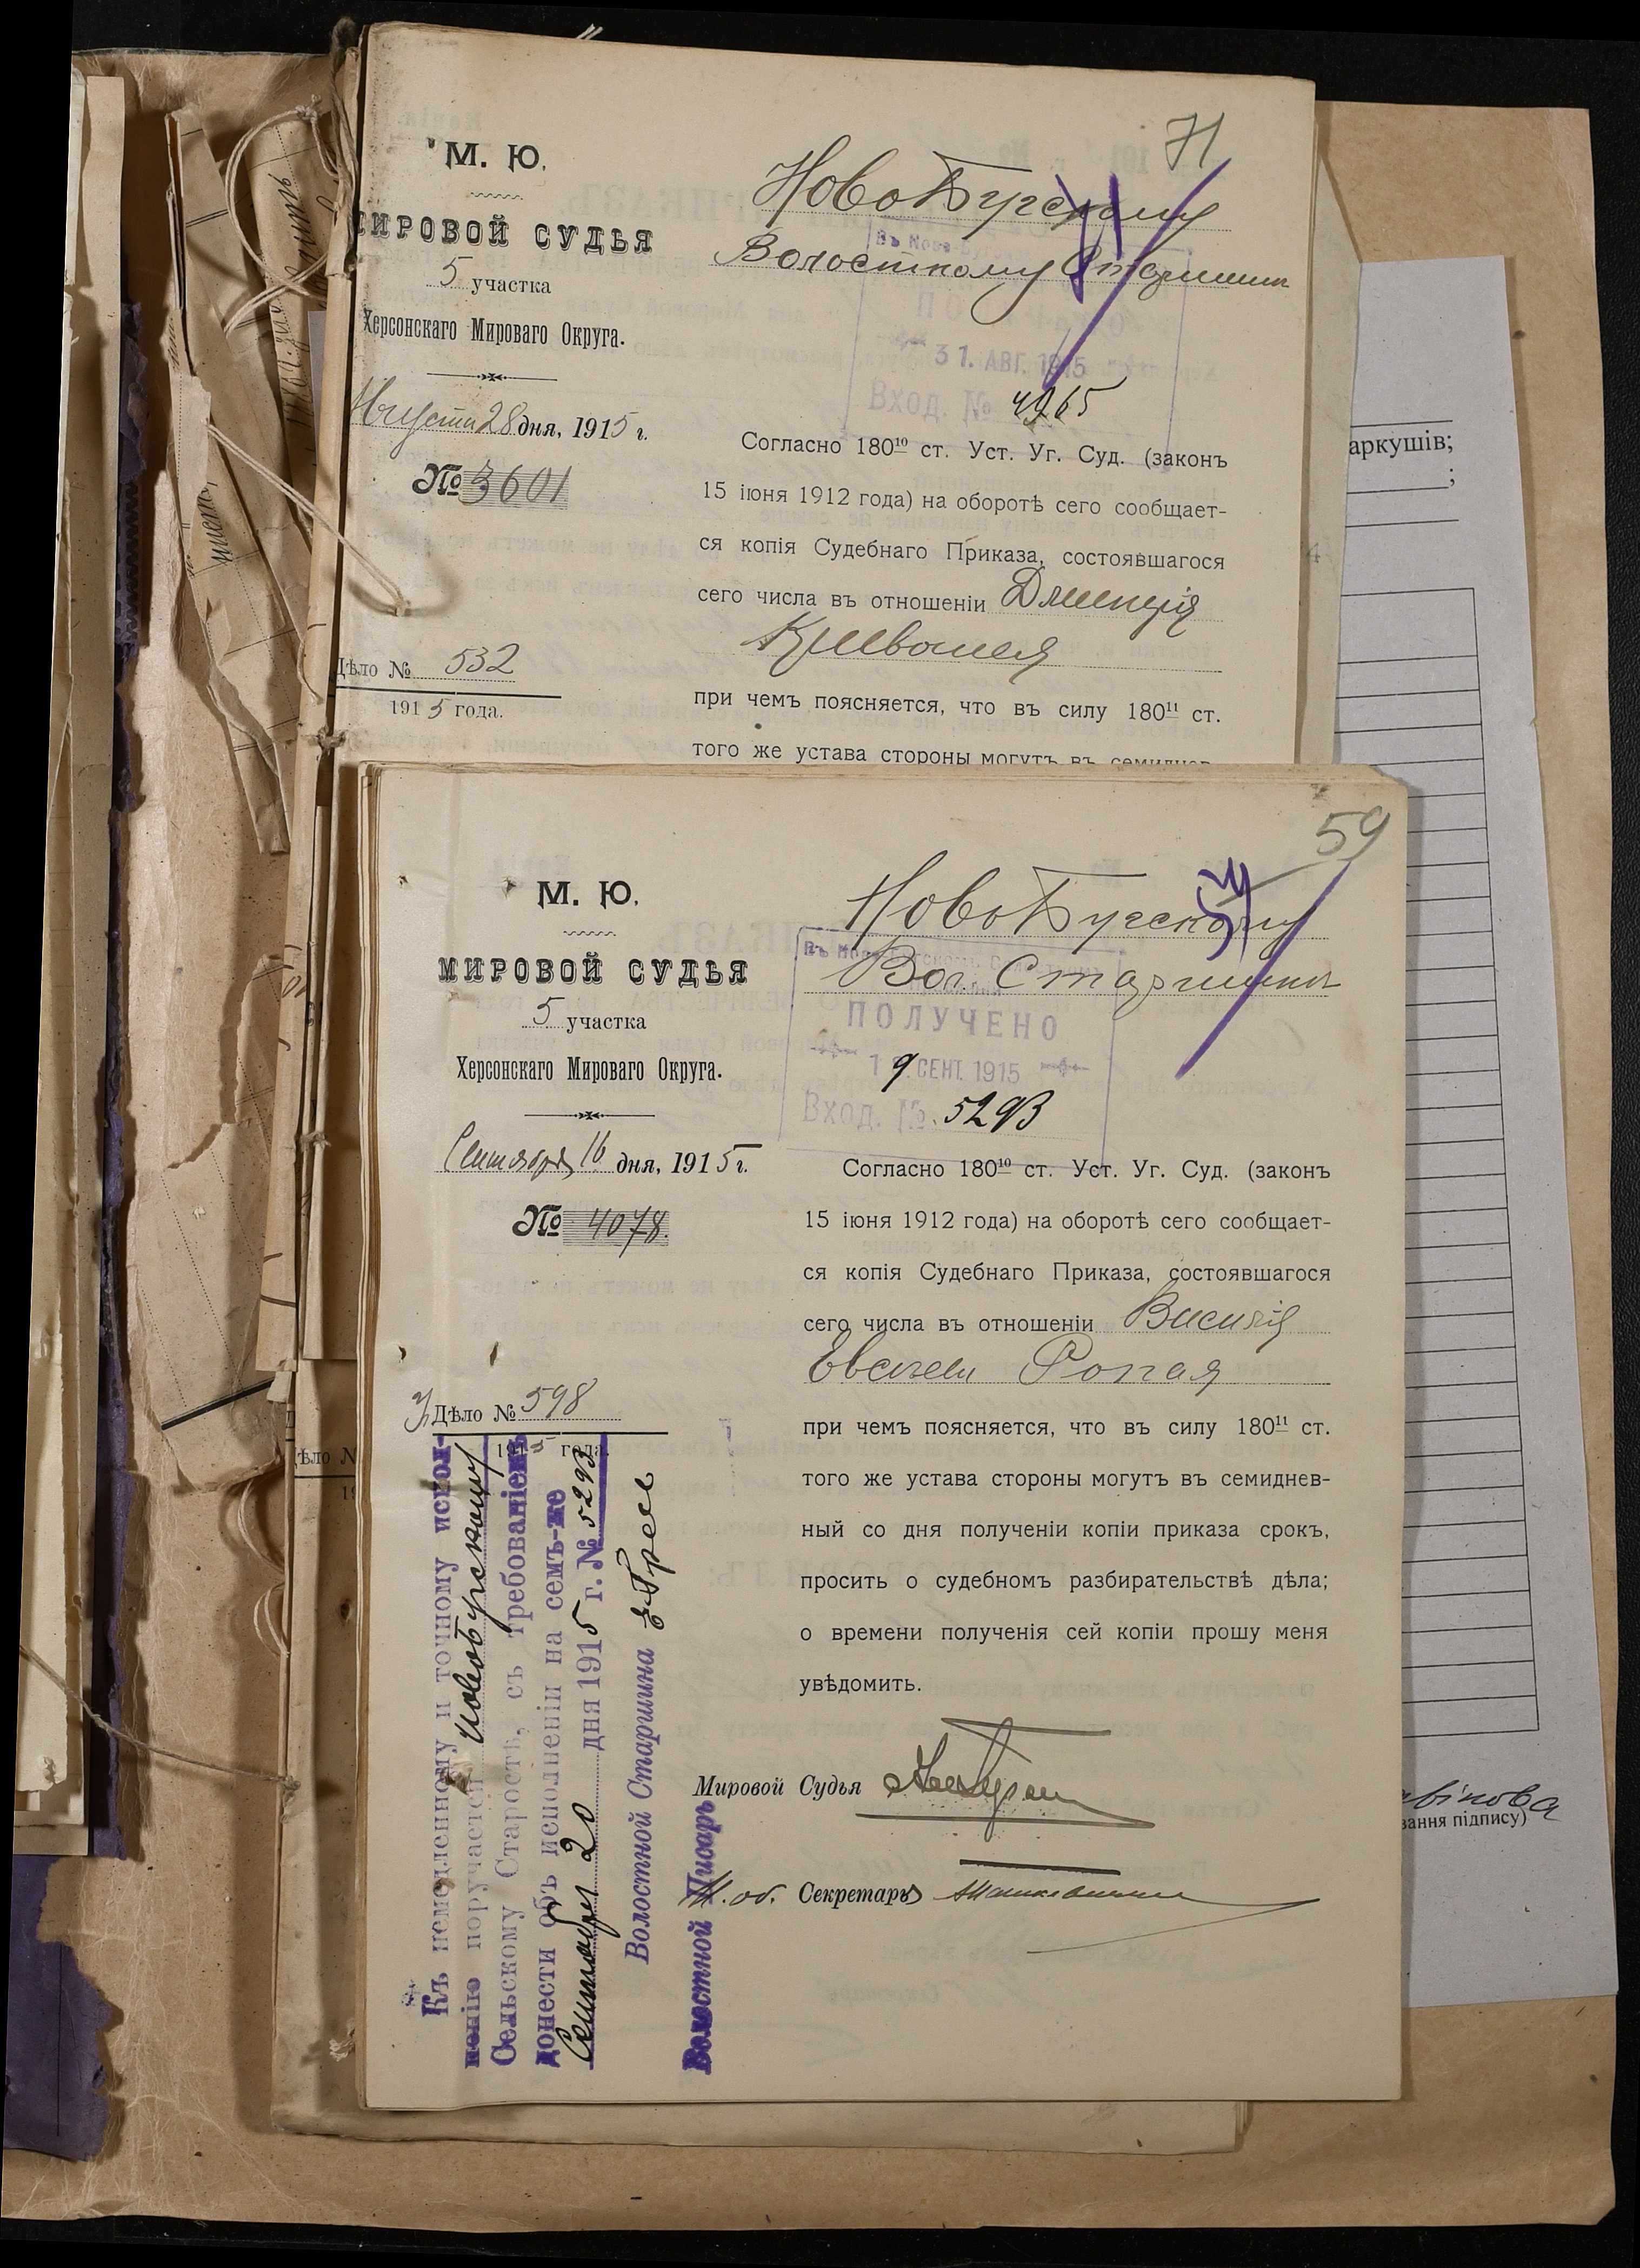 71
М. Ю.
МИРОВОЙ СУДЬЯ
5 участка
Херсонскаго Мироваго Округа.
Августа 28 дня, 1915 г.
№ 3601
Дѣло № 532
1915 года.
НовоБугскому
Волостному Старшинѣ
31. АВГ. 1915
Вход. № 4965
Согласно 180¹⁰ ст. Уст. Уг. Суд. (законъ
15 іюня 1912 года) на оборотѣ сего сообщает-
ся копія Судебнаго Приказа, состоявшагося
сего числа въ отношеніи Дмитрія
Кривошея
при чемъ поясняется, что въ силу 180¹¹ ст.
того же устава стороны могутъ въ семиднев-
59
М. Ю.
МИРОВОЙ СУДЬЯ
5 участка
Херсонскаго Мироваго Округа.
Сентября 16 дня, 1915 г.
№ 4078.
У. Дѣло № 598
1915 года.
НовоБугскому
Вол. Старшинѣ
ПОЛУЧЕНО
19 СЕНТ. 1915
Вход. №. 5293
Согласно 180¹⁰ ст. Уст. Уг. Суд. (законъ
15 іюня 1912 года) на оборотѣ сего сообщает-
ся копія Судебнаго Приказа, состоявшагося
сего числа въ отношеніи Василія
Ропая
при чемъ поясняется, что въ силу 180¹¹ ст.
того же устава стороны могутъ въ семиднев-
ный со дня полученіи копіи приказа срокъ,
просить о судебномъ разбирательствѣ дѣла;
о времени полученія сей копіи прошу меня
увѣдомить.
Мировой Судья
И. об. Секретаря
Къ немедленному и точному испол-
ненію поручается Новобугскому
Сельскому Старостѣ, съ требованіемъ
донести объ исполненіи на семъ-же
Сентября 20 дня 1915 г. № 5293
Волостной Старшина
Волостной Писарь
аркушів;
;
вання підпису)
Дѣло №